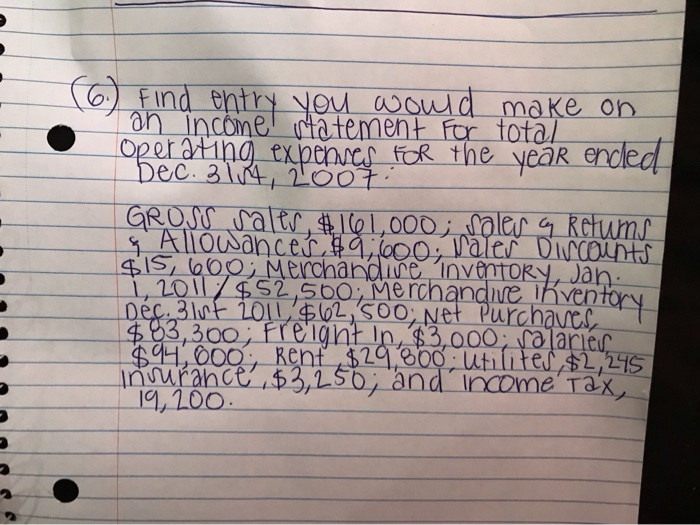 (6.) Find entry you would make on
an income statement For total
operating expenses FOR the year ended
Dec. 31st, 2007:
GROSS sales, $161,000; sales & Returns
& Allowances, $9,600; sales Discounts
$15,600; Merchandise inventory, Jan.
1, 2011, $52,500; Merchandise inventory
Dec. 31st 2011, $62,500; Net Purchases,
$83,300; Freight In, $3,000; salaries
$94,000; Rent, $29,800; utilites, $2,245
insurance, $3,250; and income Tax,
19,200.